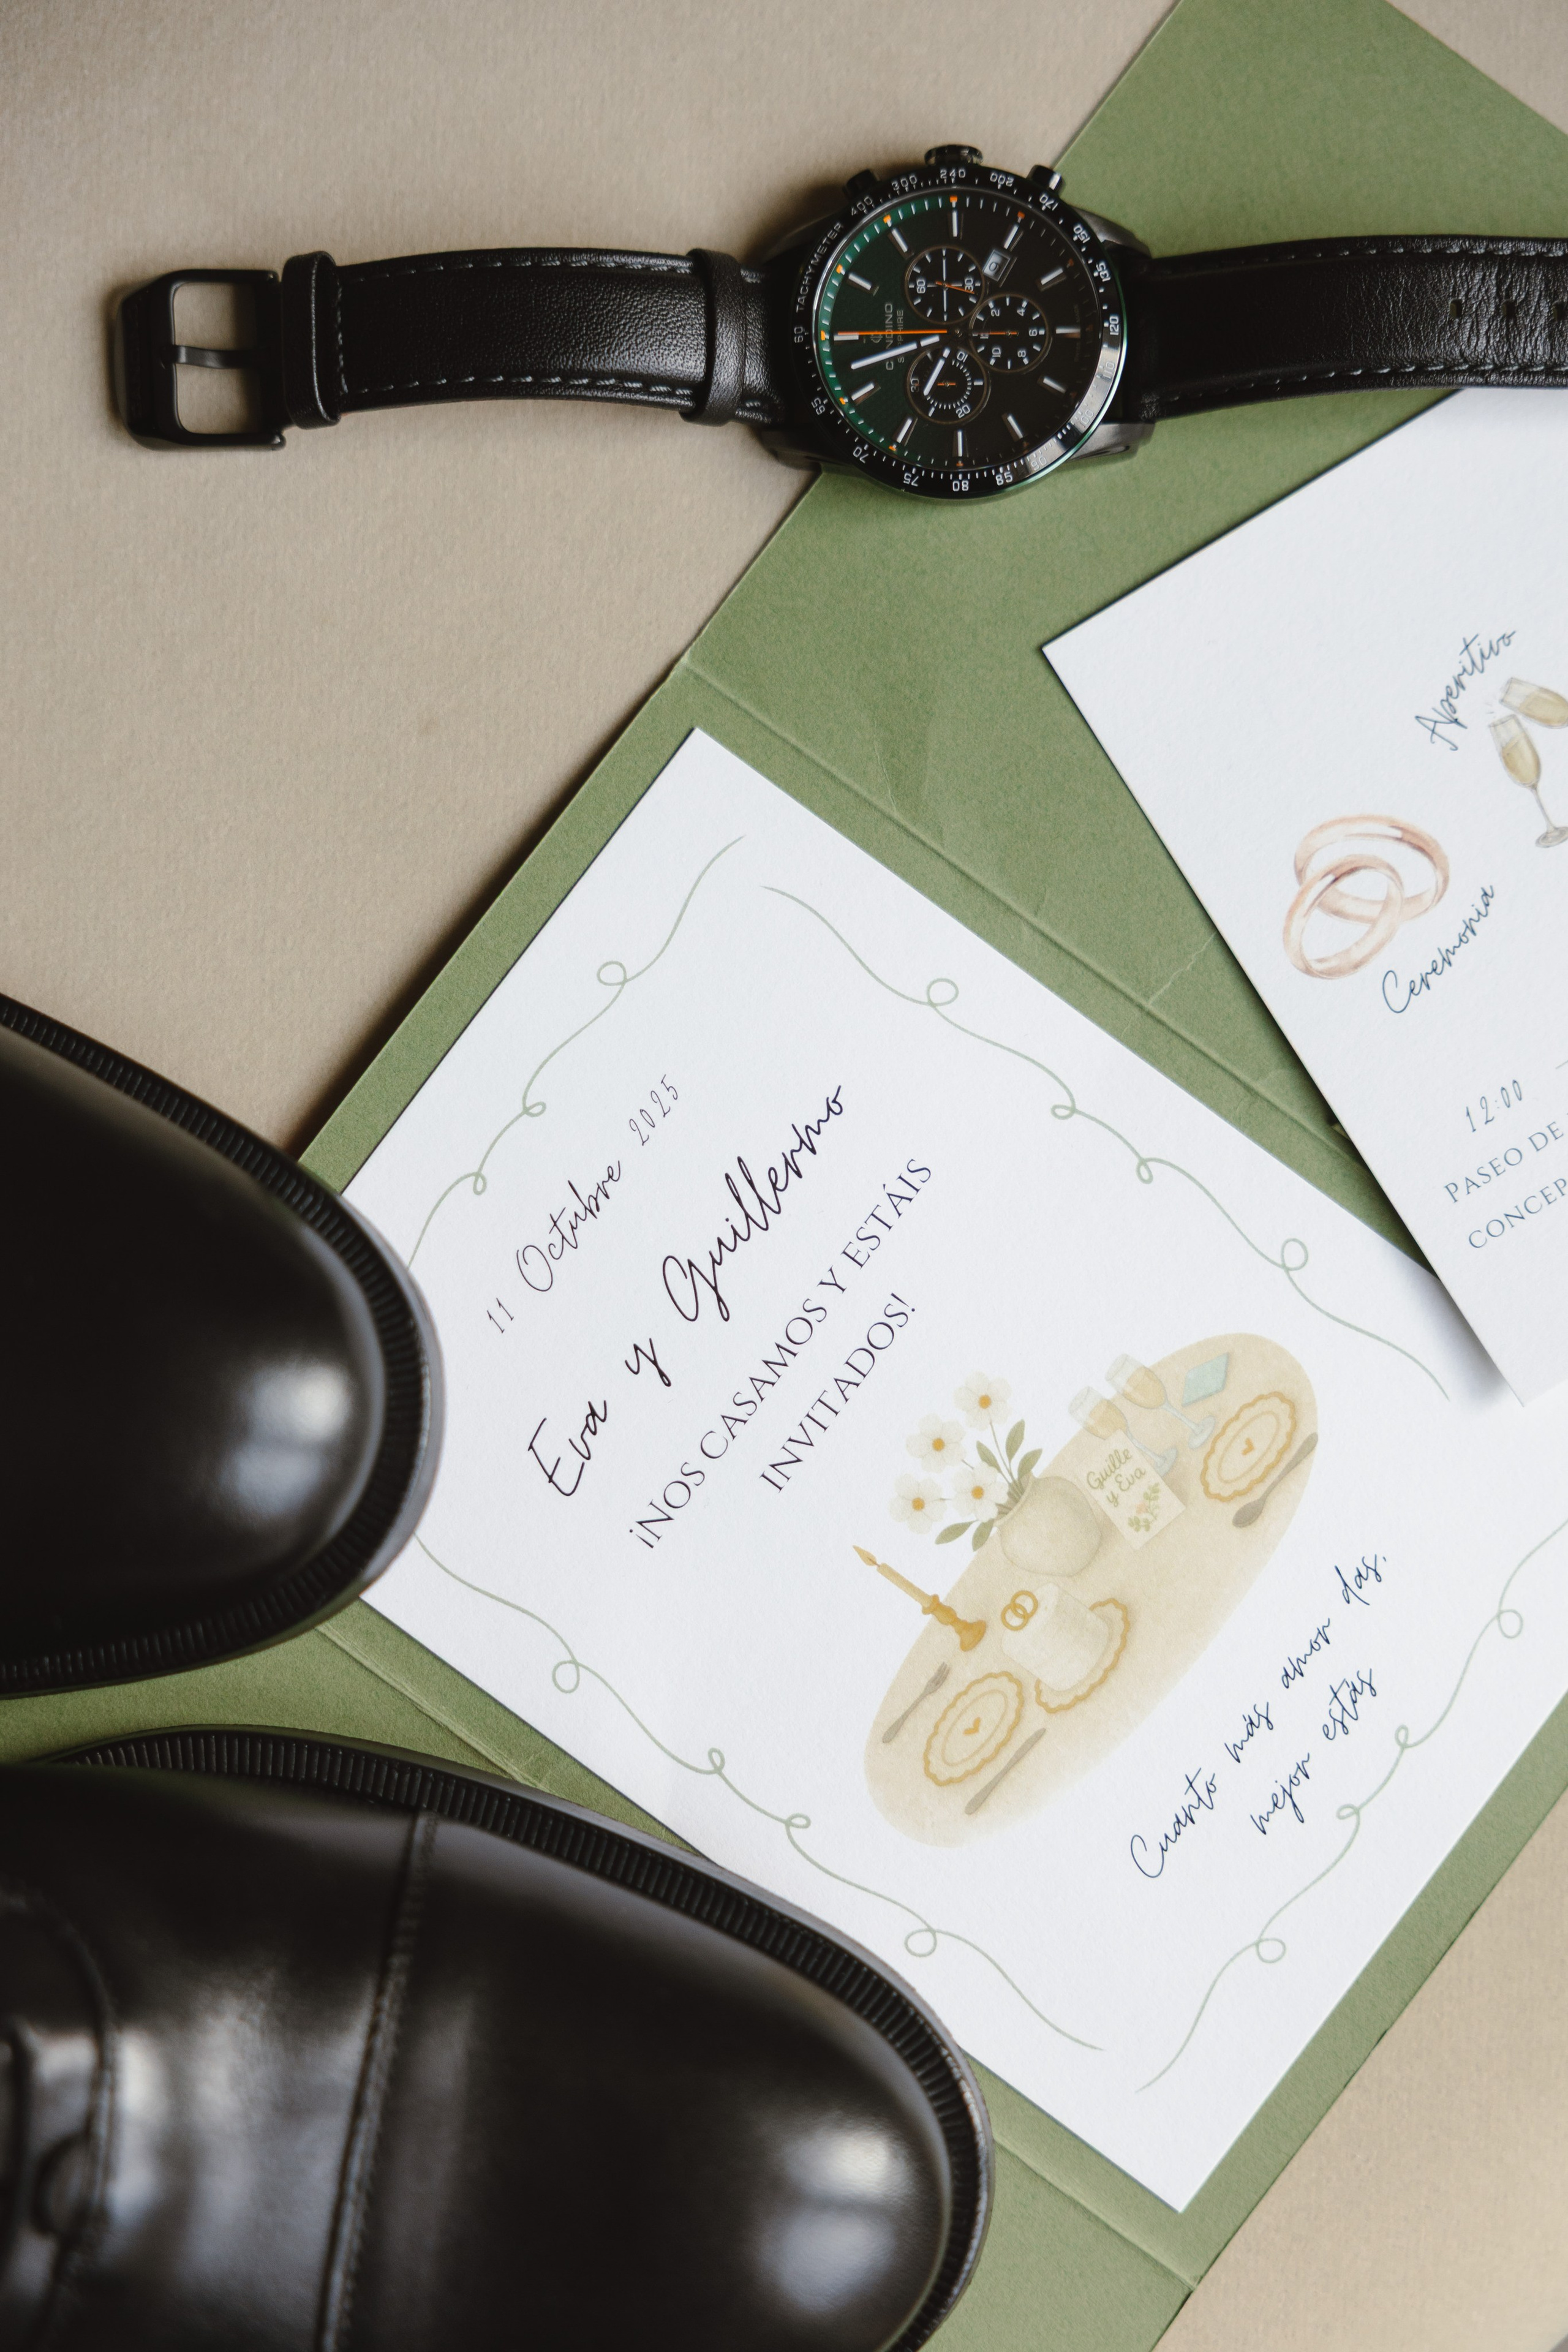 TACHYMETER
60
65
70
75
80
85
120
135
150
170
200
240
300
400
CANDINO
SAPPHIRE
60
30
2
4
6
8
10
10
20
30
11 Octubre 2025
Eva y Guillermo
¡NOS CASAMOS Y ESTÁIS
INVITADOS!
Guille
y Eva
Cuanto más amor das,
mejor estás
Aperitivo
Ceremonia
12:00
PASEO DE
CONCEP